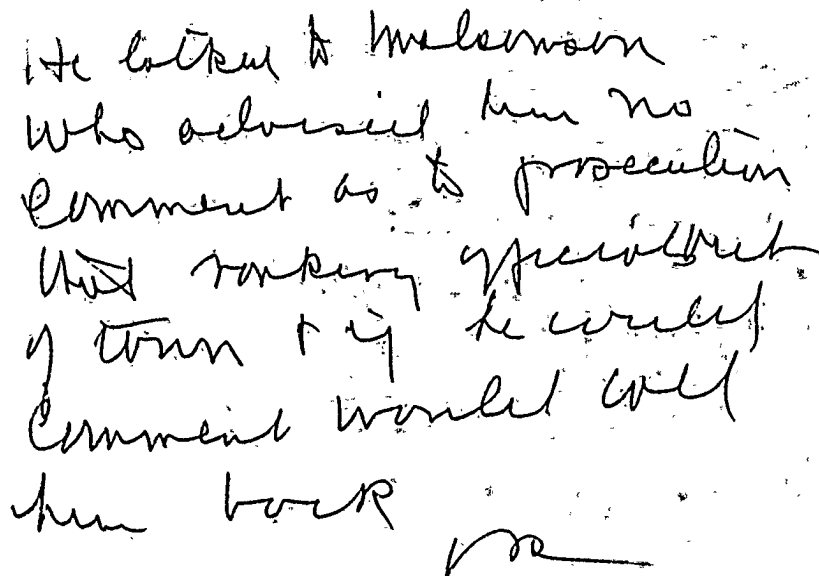 He talked to
who advised him no
comment as to prosecution
that ranking official out
of town & if he could
comment would call
him back